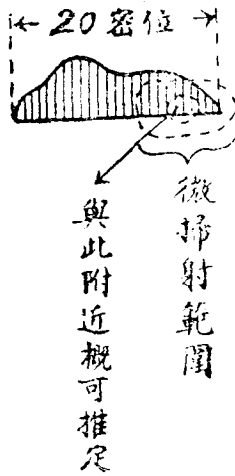 20密位
微掃射範圍
與此附近概可推定